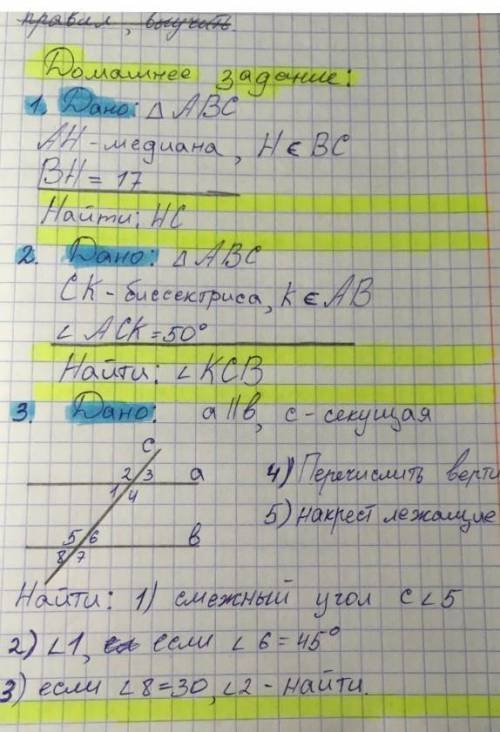 правил, выучить.
Домашнее задание:
1. Дано: △ ABC
AH - медиана, H ∈ BC
BH = 17
Найти: HC
2. Дано: △ ABC
CK - биссектриса, K ∈ AB
∠ ACK = 50°
Найти: ∠ KCB
3. Дано: a || в, c - секущая
c
2 3 a
1 4
4) Перечислить верти
5) накрест лежащие
5 6 в
8 7
Найти: 1) смежный угол с ∠5
2) ∠1, если ∠ 6 = 45°
3) если ∠8 = 30, ∠2 - найти.